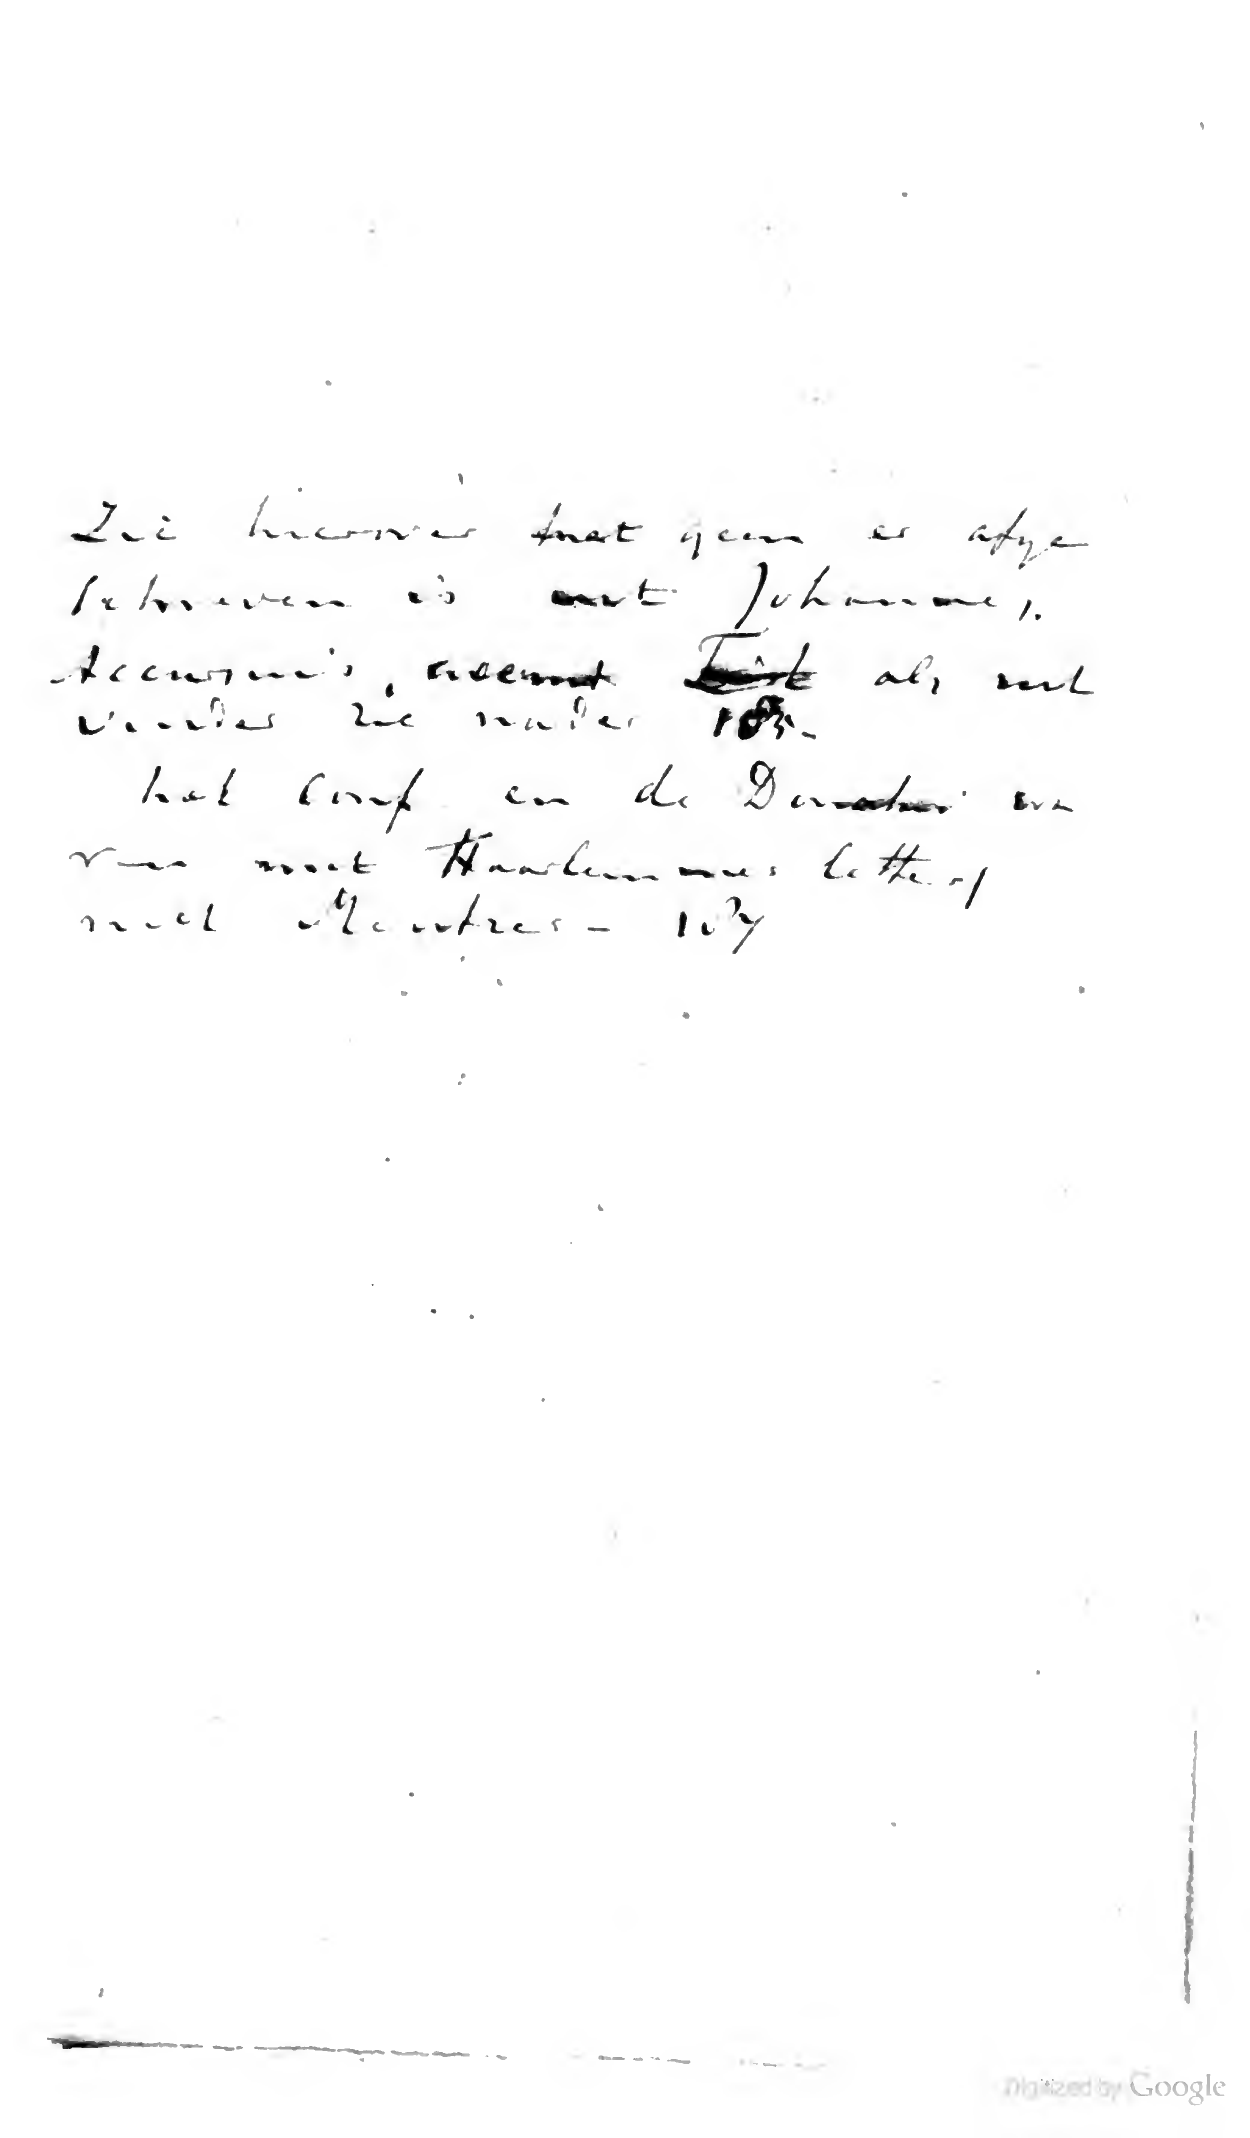 Zie hierover het geen er afge
schreven is uit Johannes.
Accursius, neemt als uit
vinder zie nader 185.
het Conf en de Donatus
met Haarlemmer letters
niet Mentzer - 107
Digitized by Google